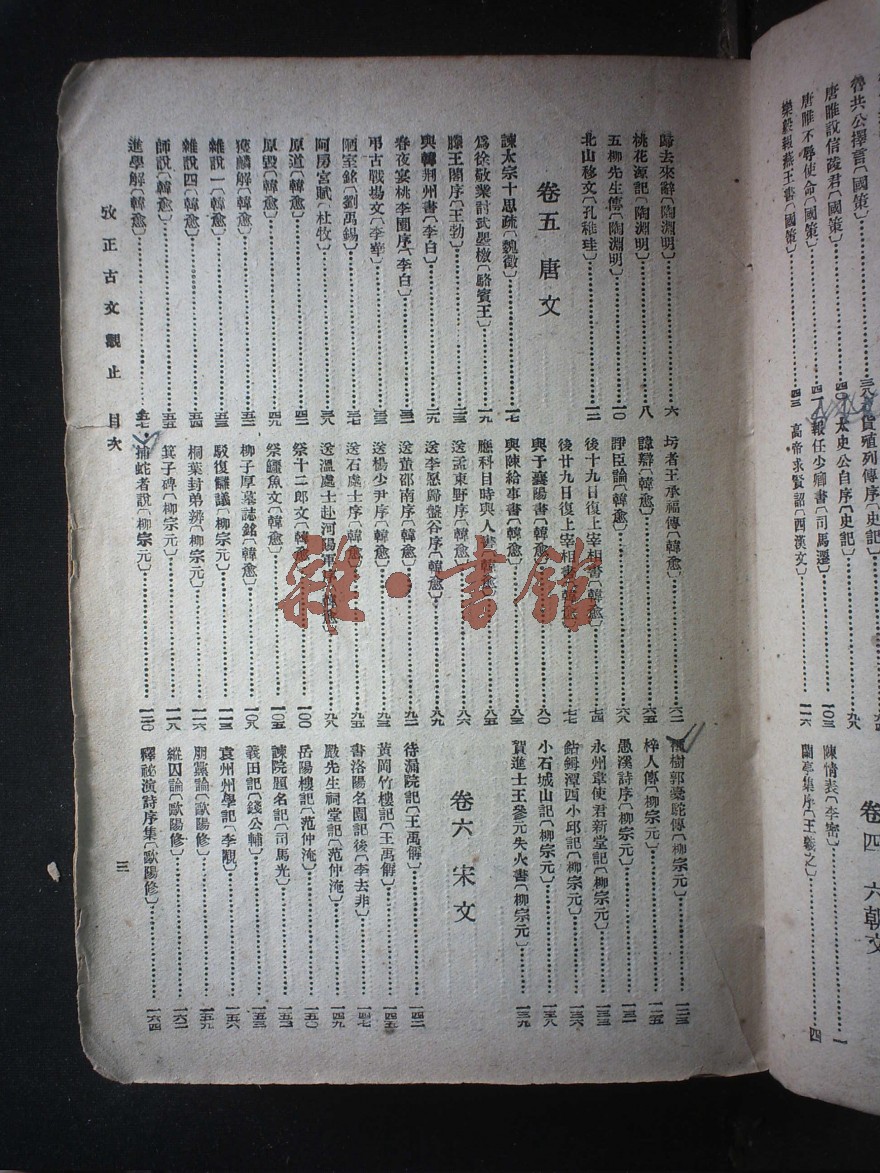 魯共公擇言〔國策〕
唐雎說信陵君〔國策〕
唐雎不辱使命〔國策〕
樂毅報燕王書〔國策〕
三八
四〇
四一
四三
貨殖列傳〔史記〕
太史公自序〔史記〕
報任少卿書〔司馬遷〕
高帝求賢詔〔西漢文〕
九九
一〇三
一一六
卷四 六朝文
陳情表〔李密〕 一
蘭亭集序〔王羲之〕 四
歸去來辭〔陶淵明〕 六
桃花源記〔陶淵明〕 八
五柳先生傳〔陶淵明〕 一〇
北山移文〔孔稚珪〕 一二
卷五 唐文
諫太宗十思疏〔魏徵〕 一七
爲徐敬業討武曌檄〔駱賓王〕 一九
滕王閣序〔王勃〕 二三
與韓荆州書〔李白〕 二九
春夜宴桃李園序〔李白〕
弔古戰場文〔李華〕
陋室銘〔劉禹錫〕 三七
阿房宮賦〔杜牧〕 三八
原道〔韓愈〕 四二
原毀〔韓愈〕 四九
獲麟解〔韓愈〕
雜說一〔韓愈〕
雜說四〔韓愈〕 五四
師說〔韓愈〕 五五
進學解〔韓愈〕 五七
圬者王承福傳〔韓愈〕 六二
諱辯〔韓愈〕 六五
諍臣論〔韓愈〕 六八
後十九日復上宰相書〔韓愈〕 七四
後廿九日復上宰相書〔韓愈〕 七七
與于襄陽書〔韓愈〕 八〇
與陳給事書〔韓愈〕 八三
應科目時與人書〔韓愈〕 八五
送孟東野序〔韓愈〕 八六
送李愿歸盤谷序〔韓愈〕 八九
送董邵南序〔韓愈〕 九二
送楊少尹序〔韓愈〕 九三
送石處士序〔韓愈〕 九五
送溫處士赴河陽軍序〔韓愈〕 九八
祭十二郎文〔韓愈〕 一〇〇
祭鱷魚文〔韓愈〕 一〇五
柳子厚墓誌銘〔韓愈〕 一〇八
駁復讎議〔柳宗元〕 一一三
桐葉封弟辨〔柳宗元〕 一一六
箕子碑〔柳宗元〕 一一八
捕蛇者說〔柳宗元〕 一二〇
種樹郭橐駝傳〔柳宗元〕 一二三
梓人傳〔柳宗元〕 一二五
愚溪詩序〔柳宗元〕 一三一
永州韋使君新堂記〔柳宗元〕 一三三
鈷鉧潭西小邱記〔柳宗元〕 一三六
小石城山記〔柳宗元〕 一三八
賀進士王參元失火書〔柳宗元〕 一三九
卷六 宋文
待漏院記〔王禹偁〕 一四二
黃岡竹樓記〔王禹偁〕 一四五
書洛陽名園記後〔李去非〕 一四七
嚴先生祠堂記〔范仲淹〕 一四九
岳陽樓記〔范仲淹〕 一五〇
諫院題名記〔司馬光〕 一五二
義田記〔錢公輔〕 一五三
袁州州學記〔李覯〕 一五六
朋黨論〔歐陽修〕 一五九
縱囚論〔歐陽修〕 一六二
釋祕演詩序集〔歐陽修〕 一六四
攷正古文觀止 目次
三
雜·書館